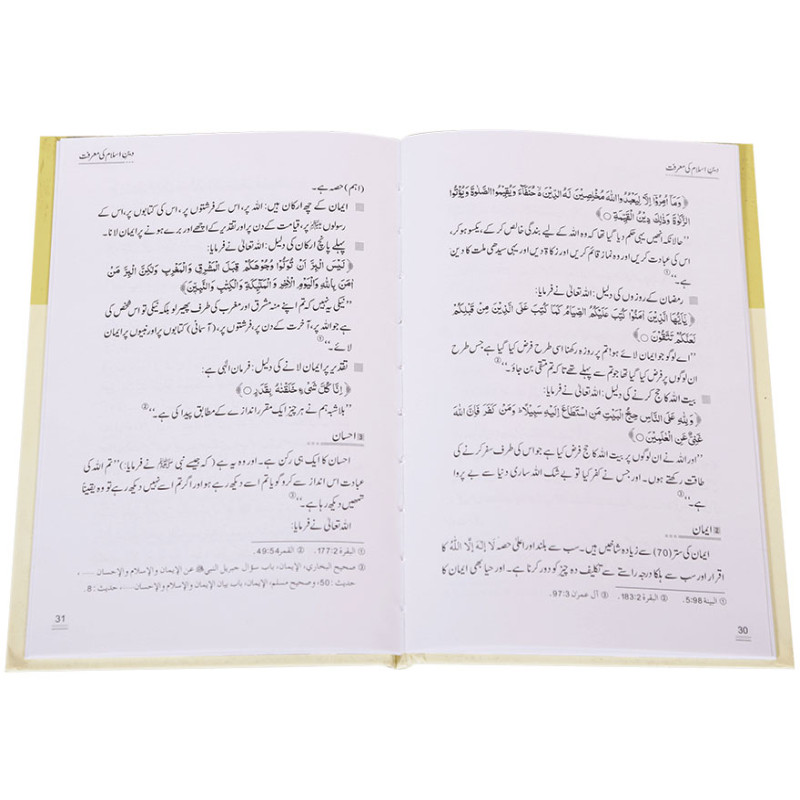 دین اسلام کی معرفت
﴿وَمَآ اُمِرُوْٓا اِلَّا لِيَعْبُدُوا اللّٰهَ مُخْلِصِيْنَ لَهُ الدِّيْنَ ەۙ حُنَفَآءَ وَيُقِيْمُوا الصَّلٰوةَ وَيُؤْتُوا
الزَّكٰوةَ وَذٰلِكَ دِيْنُ الْقَيِّمَةِ ○﴾
’’حالانکہ انھیں یہی حکم دیا گیا تھا کہ وہ اللہ کے لیے بندگی خالص کر کے، یکسو ہو کر،
اس کی عبادت کریں اور وہ نماز قائم کریں اور زکاۃ دیں اور یہی سیدھی ملت کا دین
ہے۔‘‘①
رمضان کے روزوں کی دلیل: اللہ تعالیٰ نے فرمایا:
﴿يٰٓاَيُّهَا الَّذِيْنَ اٰمَنُوْا كُتِبَ عَلَيْكُمُ الصِّيَامُ كَمَا كُتِبَ عَلَى الَّذِيْنَ مِنْ قَبْلِكُمْ
لَعَلَّكُمْ تَتَّقُوْنَ ○﴾
’’اے لوگو جو ایمان لائے ہو! تم پر روزہ رکھنا اسی طرح فرض کیا گیا ہے جس طرح
ان لوگوں پر فرض کیا گیا تھا جو تم سے پہلے تھے تاکہ تم متقی بن جاؤ۔‘‘②
بیت اللہ کا حج کرنے کی دلیل: اللہ تعالیٰ نے فرمایا:
﴿وَلِلّٰهِ عَلَى النَّاسِ حِجُّ الْبَيْتِ مَنِ اسْتَطَاعَ اِلَيْهِ سَبِيْلًا ؕ وَمَنْ كَفَرَ فَاِنَّ اللّٰهَ
غَنِيٌّ عَنِ الْعٰلَمِيْنَ ○﴾
’’اور اللہ نے ان لوگوں پر بیت اللہ کا حج فرض کیا ہے جو اس کی طرف سفر کرنے کی
طاقت رکھتے ہوں۔ اور جس نے کفر کیا تو بے شک اللہ ساری دنیا سے بے پروا
ہے۔‘‘③
② ایمان
ایمان کی ستر (70) سے زیادہ شاخیں ہیں۔ سب سے بلند اور اعلیٰ حصہ لَا اِلٰهَ اِلَّا اللّٰهُ کا
اقرار اور سب سے ہلکا درجہ راستے سے تکلیف دہ چیز کو دور کرنا ہے۔ اور حیا بھی ایمان کا
① البینة 5:98. ② البقرة 183:2. ③ آل عمران 97:3.
30
دین اسلام کی معرفت
(اہم) حصہ ہے۔
ایمان کے چھ ارکان ہیں: اللہ پر، اس کے فرشتوں پر، اس کی کتابوں پر، اس کے
رسولوں ﷺ پر، قیامت کے دن پر اور تقدیر کے اچھے اور برے ہونے پر ایمان لانا۔
پہلے پانچ ارکان کی دلیل: اللہ تعالیٰ نے فرمایا:
﴿لَيْسَ الْبِرَّ اَنْ تُوَلُّوْا وُجُوْهَكُمْ قِبَلَ الْمَشْرِقِ وَالْمَغْرِبِ وَلٰكِنَّ الْبِرَّ مَنْ
اٰمَنَ بِاللّٰهِ وَالْيَوْمِ الْاٰخِرِ وَالْمَلٰٓئِكَةِ وَالْكِتٰبِ وَالنَّبِيّٖنَ﴾
’’نیکی یہ نہیں کہ تم اپنے منہ مشرق اور مغرب کی طرف پھیر لو بلکہ نیکی تو اس شخص کی
ہے جو اللہ پر، آخرت کے دن پر، فرشتوں پر، (آسمانی) کتابوں پر اور نبیوں پر ایمان
لائے۔‘‘①
تقدیر پر ایمان لانے کی دلیل: فرمان الٰہی ہے:
﴿اِنَّا كُلَّ شَيْءٍ خَلَقْنٰهُ بِقَدَرٍ ○﴾
’’بلاشبہ ہم نے ہر چیز ایک مقرر اندازے کے مطابق پیدا کی ہے۔‘‘②
③ احسان
احسان کا ایک ہی رکن ہے۔ اور وہ یہ ہے (کہ جیسے نبی ﷺ نے فرمایا:) ’’تم اللہ کی
عبادت اس انداز سے کرو گویا تم اسے دیکھ رہے ہو اور اگر تم اسے نہیں دیکھ رہے تو وہ یقیناً
تمھیں دیکھ رہا ہے۔‘‘③
اللہ تعالیٰ نے فرمایا:
① البقرة 177:2. ② القمر 49:54.
③ صحیح البخاري، الإیمان، باب سؤال جبریل النبيﷺ عن الإیمان والإسلام والإحسان ......،
حدیث: 50، وصحیح مسلم، الإیمان، باب بیان الإیمان والإسلام والإحسان ......، حدیث: 8.
31